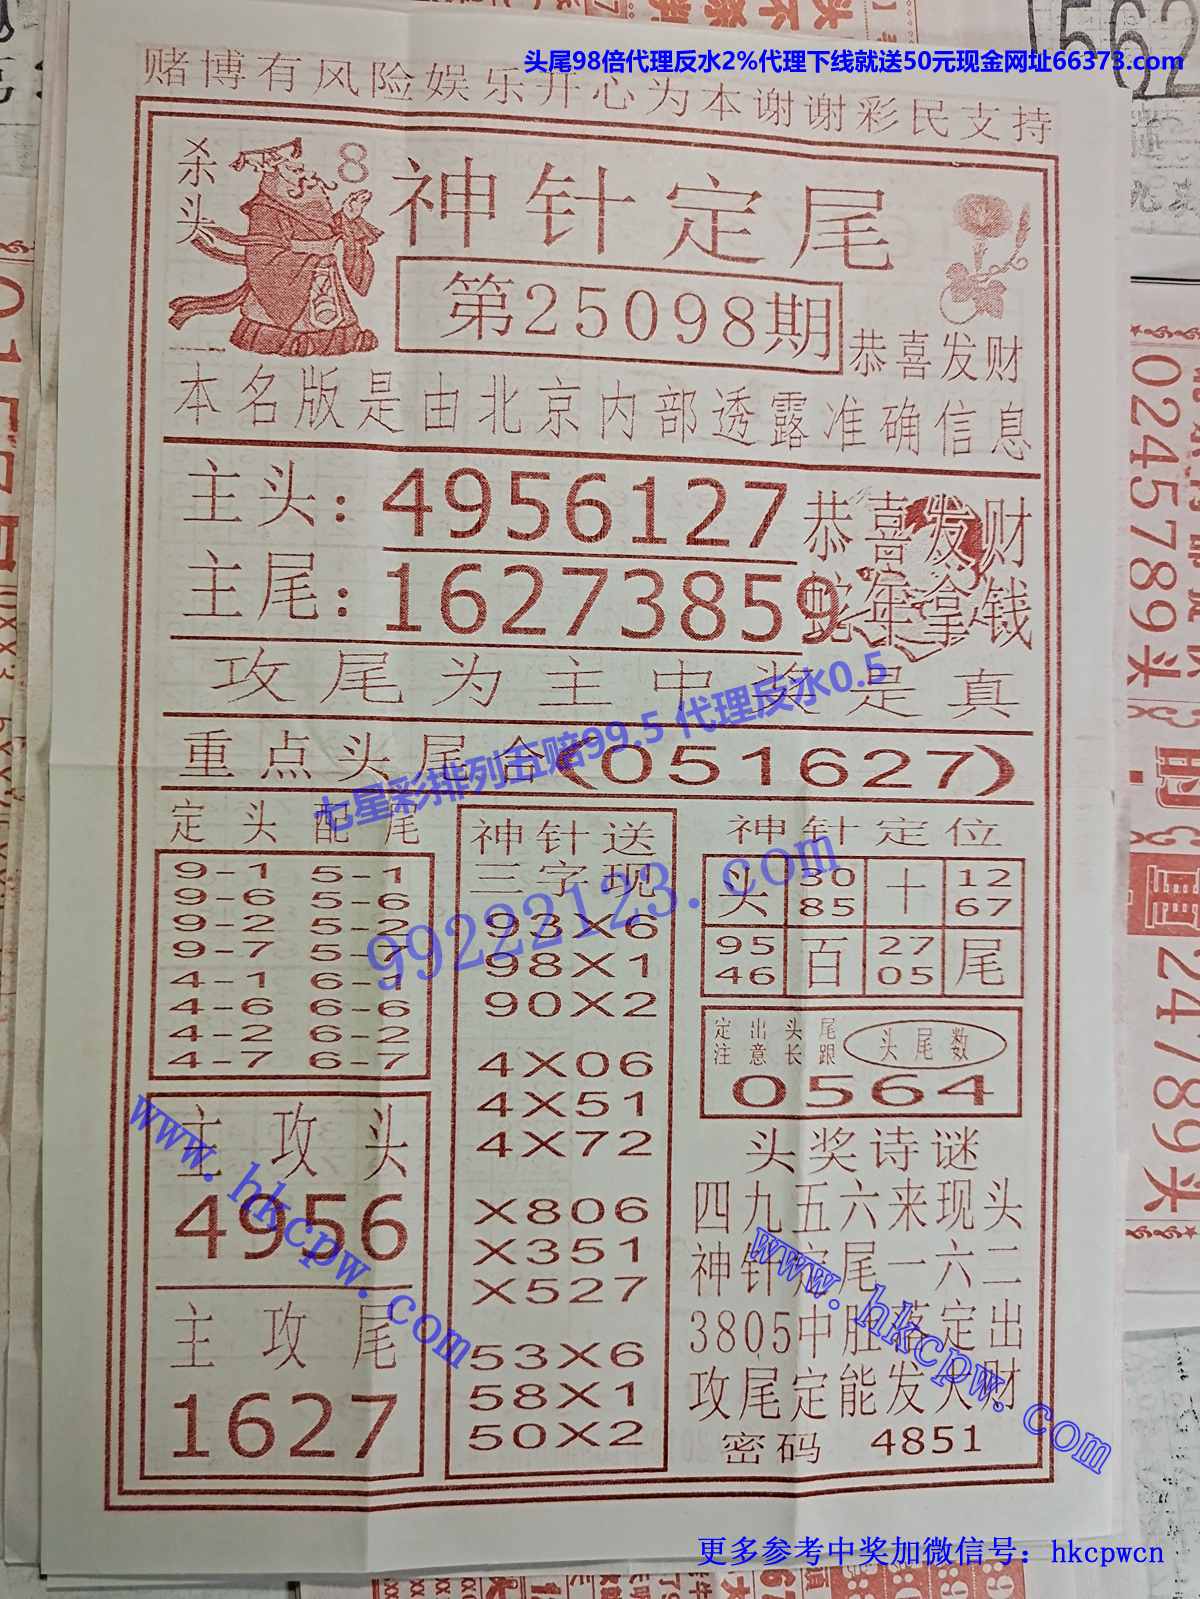 头尾98倍代理反水2%代理下线就送50元现金网址66373.com
赌博有风险娱乐开心为本谢谢彩民支持
杀头
8
神针定尾
第25098期
恭喜发财
本名版是由北京内部透露准确信息
主头:4956127
恭喜发财
主尾:16273859
蛇年拿钱
攻尾为主中奖是真
七星彩排列五赔99.5 代理反水0.5
重点头尾合(051627)
定头配尾
9-1 5-1
9-6 5-6
9-2 5-2
9-7 5-7
4-1 6-1
4-6 6-6
4-2 6-2
4-7 6-7
主攻头
4956
主攻尾
1627
神针送
三字现
93X6
98X1
90X2
4X06
4X51
4X72
X806
X351
X527
53X6
58X1
50X2
99222123.com
神针定位
头 30 十 12
85 67
95 百 27 尾
46 05
定出头尾
注意长跟
头尾数
0564
头奖诗谜
四九五六来现头
神针定尾一六二
3805中肚落定出
攻尾定能发大财
密码 4851
www.hkcpw.com
www.hkcpw.com
更多参考中奖加微信号：hkcpwcn
562
024578 9头
24789头